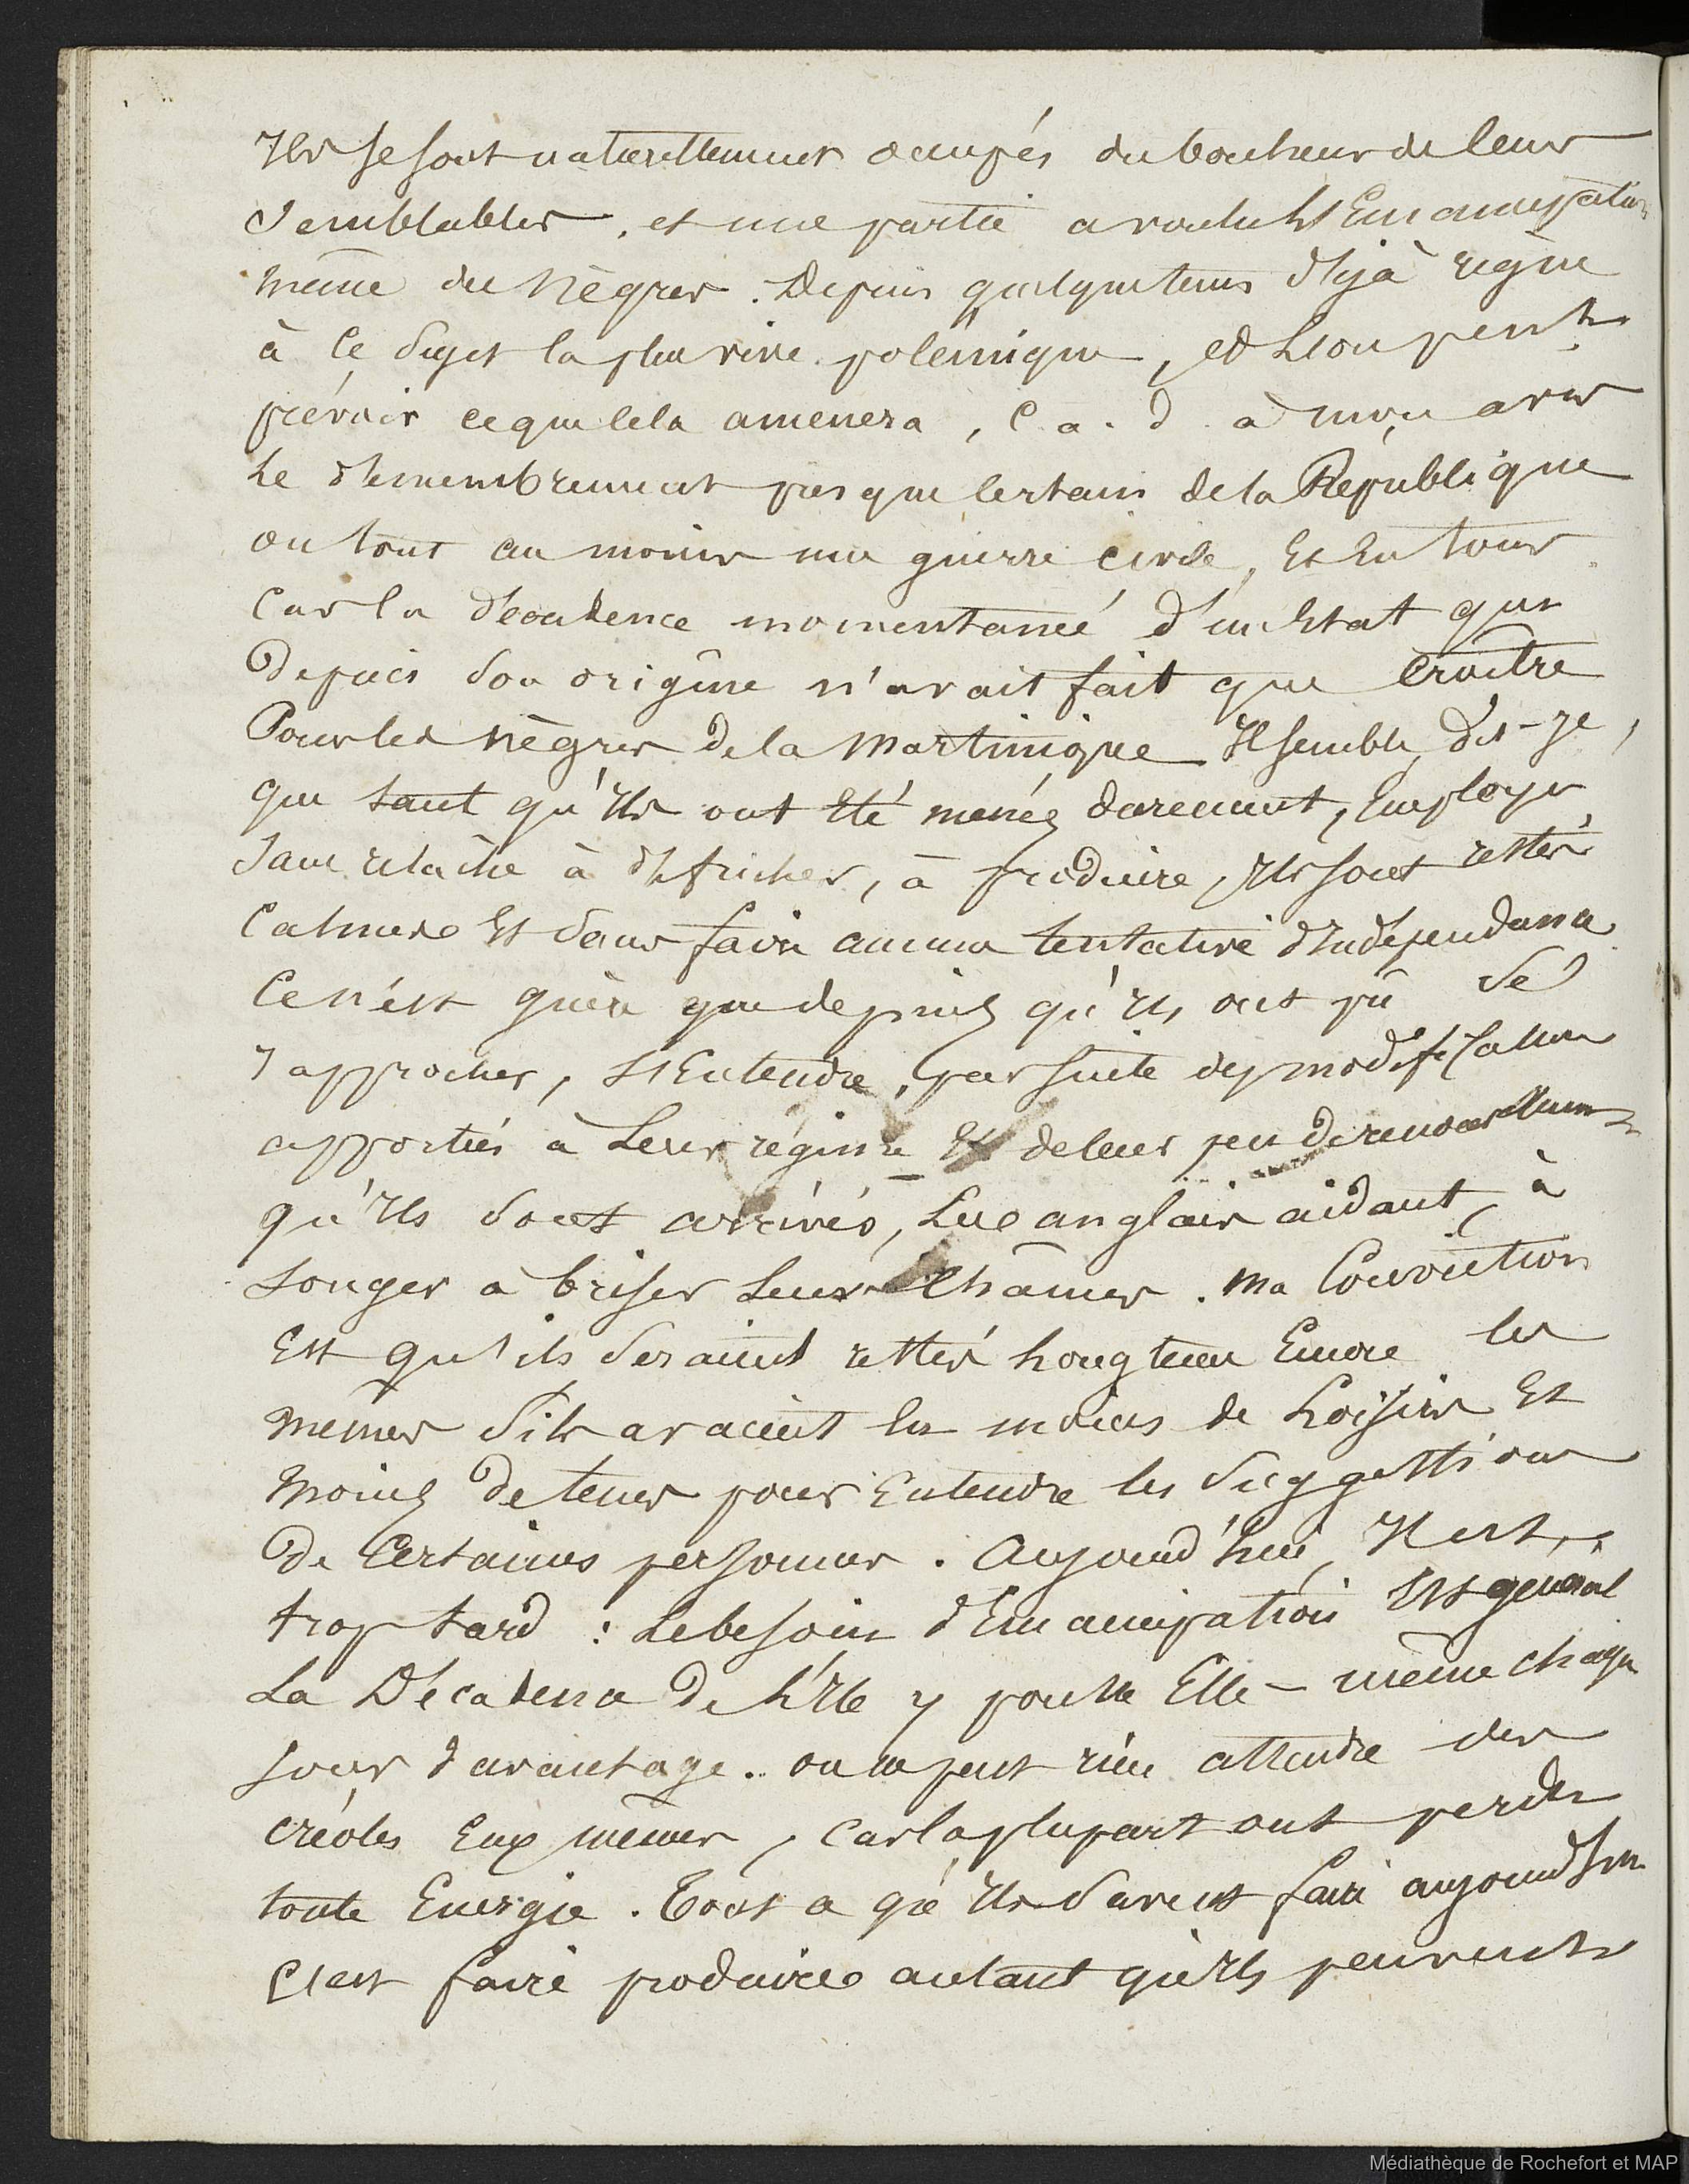 Ils se sont naturellement occupés du bonheur de leurs
semblables, et une partie a voulu l'Emancipation
même des Nègres. Depuis quelque tems déjà règne
à ce sujet la plus vive polémique, et L'on peut
prévoir ce que cela amenera, C. a. d. à mon avis
Le démembrement presque certain de la République
ou tout au moins une guerre civile, Et En tous
Cas la décadence momentanée d'un Etat qui
Depuis son origine n'avait fait que Croître
Pour les Nègres de la Martinique Il semble, dis-je,
que tant qu'Ils ont Eté menés durement, Employés
sans relache à défricher, à produire, Ils sont restés
Calmes Et sans faire aucune tentative d'Indépendance
Ce n'est guère que depuis qu'Ils ont pû se
rapprocher, S'Entendre, par suite des modifications
apportées à Leur régime Et de leur peu de renouvellement
qu'Ils sont arrivés, Les anglais aidant, à
songer à briser Leurs Chaînes. Ma Conviction
Est qu'ils seraient restés Longtems Encore les
mêmes s'ils avaient Eu moins de Loisirs Et
Moins de tems pour Entendre les suggestions
De Certaines personnes. Aujourd'hui, Il est
trop tard : Le besoin d'Emancipation Est général
La Décadence de L'Ile y pousse Elle-même chaque
Jour davantage.. on ne peut rien attendre des
créoles Eux mêmes, Car la plupart ont perdu
toute Energie. Tout ce qu'Ils savent faire aujourd'hui
C'est faire produire autant qu'Ils peuvent
Médiathèque de Rochefort et MAP